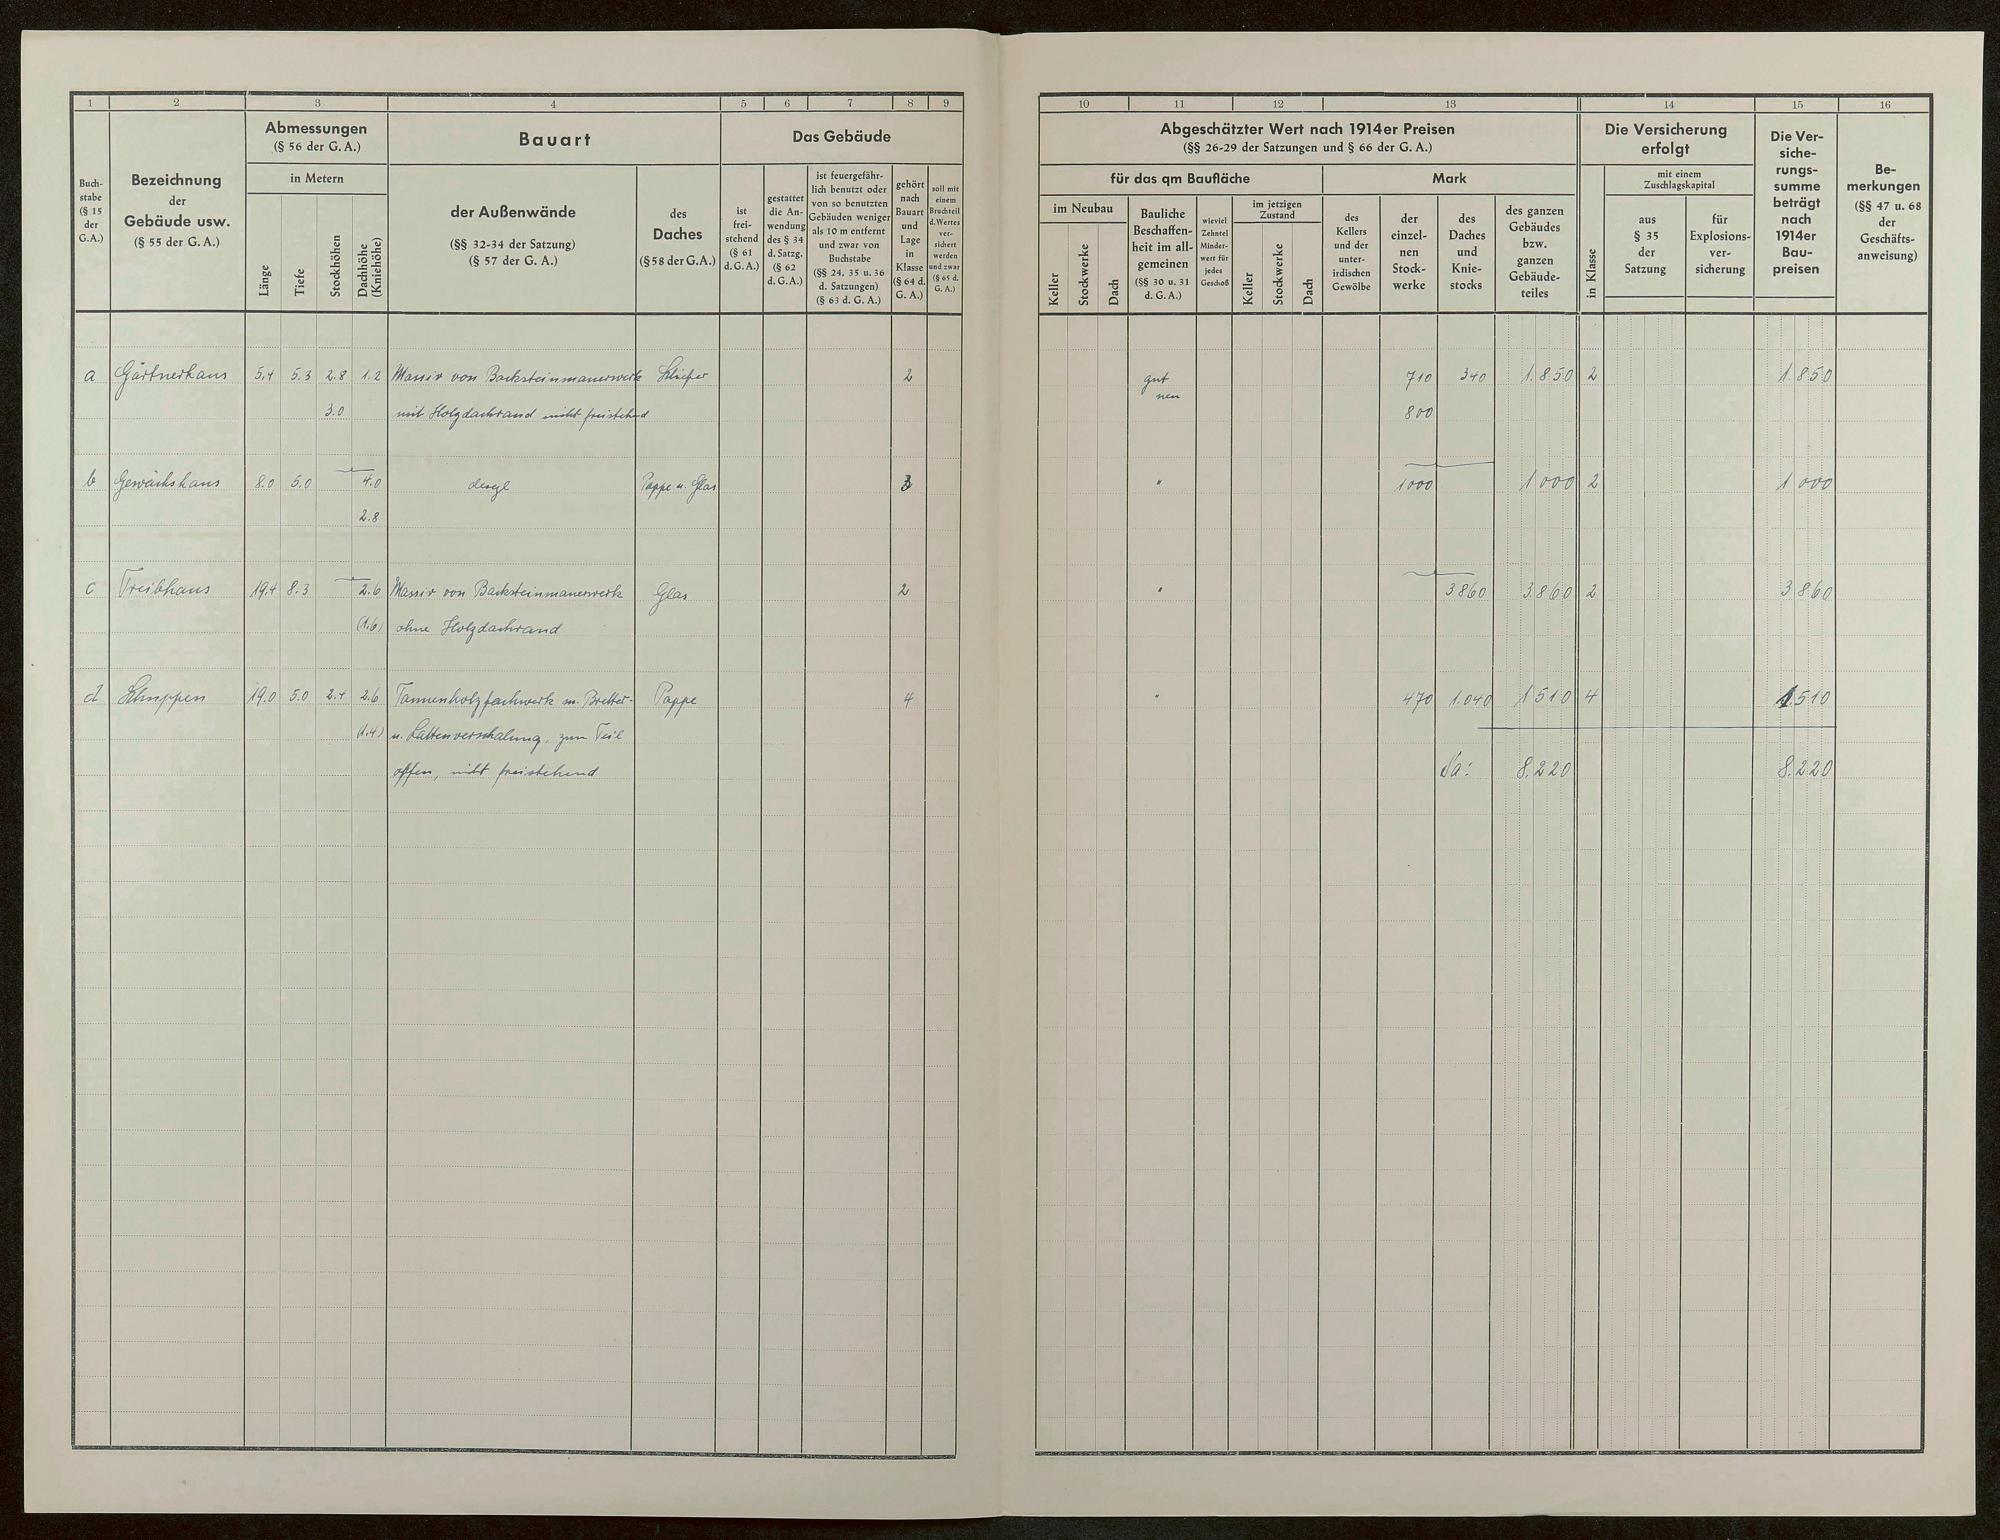 1 2 3 4 5 6 7 8 9
Buch-
stabe
(§ 15
der
G.A.)
Bezeichnung
der
Gebäude usw.
(§ 55 der G. A.)
Abmessungen
(§ 56 der G. A.)
in Metern
Länge
Tiefe
Stockhöhen
Dachhöhe
(Kniehöhe)
Bauart
der Außenwände
(§§ 32-34 der Satzung)
(§ 57 der G. A.)
des
Daches
(§ 58 der G.A.)
Das Gebäude
ist
frei-
stehend
(§ 61
d. G. A.)
gestattet
die An-
wendung
des § 34
d. Satzg.
(§ 62
d. G. A.)
ist feuergefähr-
lich benutzt oder
von so benutzten
Gebäuden weniger
als 10 m entfernt
und zwar von
Buchstabe
(§§ 24, 35 u. 36
d. Satzungen)
(§ 63 d. G. A.)
gehört
nach
Bauart
und
Lage
in
Klasse
(§ 64 d.
G. A.)
soll mit
einem
Bruchteil
d. Wertes
ver-
sichert
werden
und zwar
(§ 65 d.
G. A.)
a Gärtnerhaus 5.4 5.3 2.8 1.2 Massiv von Backsteinmauerwerk Schiefer 2
3.0 mit Holzdachrand nicht freistehend
b Gewächshaus 8.0 5.0 4.0 desgl Pappe u. Glas
2.8
c Treibhaus 19.4 8.3 2.6 Massiv von Backsteinmauerwerk Glas 2
(1.6) ohne Holzdachrand
d Schuppen 19.0 5.0 2.4 2.6 Tannenholzfachwerk m. Bretter- Pappe 4
(1.4) u. Lattenverschalung, zum Teil
offen, nicht freistehend
10 11 12 13 14 15 16
Abgeschätzter Wert nach 1914er Preisen
(§§ 26-29 der Satzungen und § 66 der G. A.)
für das qm Baufläche
im Neubau
Keller
Stockwerke
Dach
Bauliche
Beschaffen-
heit im all-
gemeinen
(§§ 30 u. 31
d. G. A.)
wieviel
Zehntel
Minder-
wert für
jedes
Geschoß
im jetzigen
Zustand
Keller
Stockwerke
Dach
Mark
des
Kellers
und der
unter-
irdischen
Gewölbe
der
einzel-
nen
Stock-
werke
des
Daches
und
Knie-
stocks
des ganzen
Gebäudes
bzw.
ganzen
Gebäude-
teiles
Die Versicherung
erfolgt
in Klasse
mit einem
Zuschlagskapital
aus
§ 35
der
Satzung
für
Explosions-
ver-
sicherung
Die Ver-
siche-
rungs-
summe
beträgt
nach
1914er
Bau-
preisen
Be-
merkungen
(§§ 47 u. 68
der
Geschäfts-
anweisung)
gut 710 340 1.850 2 1.850
neu
800
" 1000 1000 2 1000
" 3860 3.860 2 3860
" 470 1.040 1510 4 1510
Sa: 8.220 8.220